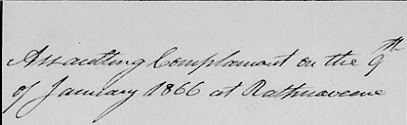 Assaulting Complainant on the 9th
of January 1866 at